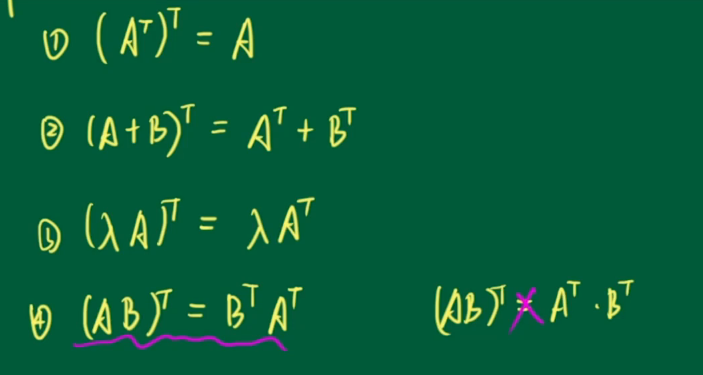 ① (Aᵀ)ᵀ = A
② (A+B)ᵀ = Aᵀ + Bᵀ
③ (λA)ᵀ = λAᵀ
④ (AB)ᵀ = BᵀAᵀ (AB)ᵀ ≠ Aᵀ · Bᵀ